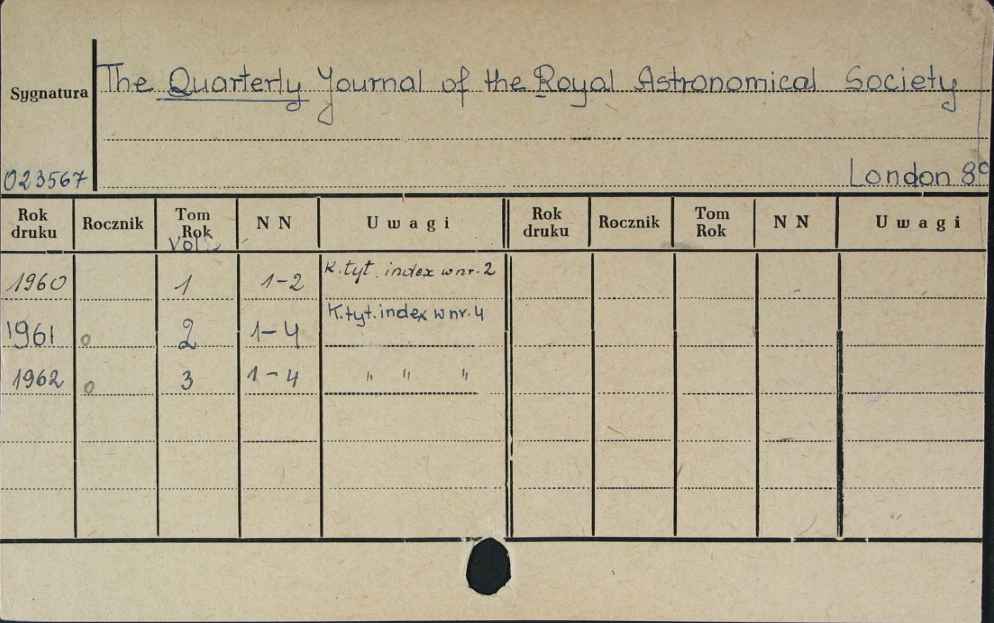 The Quarterly Journal of the Royal Astronomical Society
Sygnatura
023567 London 8°
Rok druku Rocznik Tom Rok Vol. N N Uwagi Rok druku Rocznik Tom Rok N N Uwagi
1960 1 1-2 K. tyt. index w nr. 2
1961 o 2 1-4 K. tyt. index w nr. 4
1962 o 3 1-4 " " "